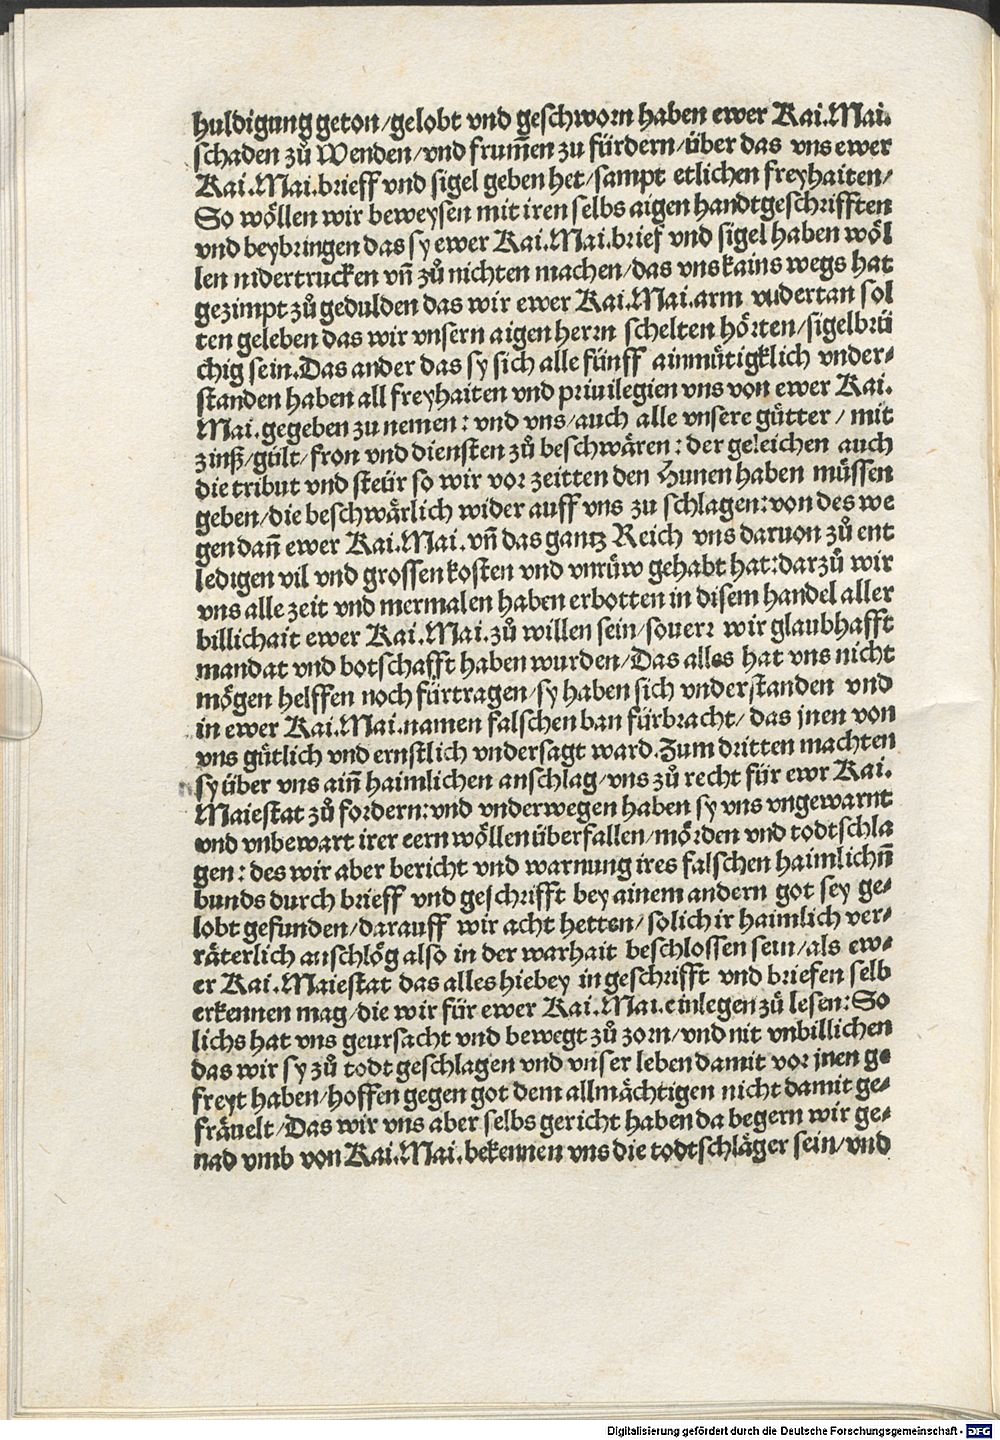 huldigung geton/gelobt vnd geschworn haben ewer Kai.Mai.
schaden zů Wenden/vnd frum̄en zu fürdern/über das vns ewer
Kai.Mai.brieff vnd sigel geben het/sampt etlichen freyhaiten/
So wöllen wir beweysen mit iren selbs aigen handtgeschrifften
vnd beybringen das sy ewer Kai.Mai.brief vnd sigel haben wöl
len nidertrucken vn̄ zů nichten machen/das vns kains wegs hat
gezimpt zů gedulden das wir ewer Kai.Mai.arm vudertan sol
ten geleben das wir vnsern aigen herrn schelten hörten/sigelbrü
chig sein.Das ander das sy sich alle fünff ainmütigklich vnder-
standen haben all freyhaiten vnd priuilegien vns von ewer Kai.
Mai.gegeben zu nemen:vnd vns/auch alle vnsere gütter/mit
zinß/gült/fron vnd diensten zů beschwären:der geleichen auch
die tribut vnd steür so wir vor zeitten den Hunen haben müssen
geben/die beschwärlich wider auff vns zu schlagen:von des we
gen dan̄ ewer Kai.Mai.vn̄ das gantz Reich vns daruon zů ent
ledigen vil vnd grossen kosten vnd vnrüw gehabt hat:darzů wir
vns alle zeit vnd mermalen haben erbotten in disem handel aller
billichait ewer Kai.Mai.zů willen sein/souerr wir glaubhafft
mandat vnd botschafft haben wurden/Das alles hat vns nicht
mögen helffen noch fürtragen/sy haben sich vnderstanden vnd
in ewer Kai.Mai.namen falschen ban fürbracht/das jnen von
vns gütlich vnd ernstlich vndersagt ward.Zum dritten machten
sy über vns ain̄ haimlichen anschlag/vns zů recht für ewr Kai.
Maiestat zů fordern:vnd vnderwegen haben sy vns vngewarnt
vnd vnbewart irer eern wöllen überfallen/mörden vnd todtschla
gen:des wir aber bericht vnd warnung ires falschen haimlichn̄
bunds durch brieff vnd geschrifft bey ainem andern got sey ge-
lobt gefunden/darauff wir acht hetten/solich ir haimlich ver-
räterlich anschlög also in der warhait beschlossen sein/als ew-
er Kai.Maiestat das alles hiebey in geschrifft vnd briefen selb
erkennen mag/die wir für ewer Kai.Mai.einlegen zů lesen:So
lichs hat vns geursacht vnd bewegt zů zorn/vnd nit vnbillichen
das wir sy zů todt geschlagen vnd vnser leben damit vor jnen ge
freyt haben/hoffen gegen got dem allmächtigen nicht damit ge-
fräuelt/Das wir vns aber selbs gericht haben da begern wir ge-
nad vmb von Kai.Mai.bekennen vns die todtschläger sein/vnd
Digitalisierung gefördert durch die Deutsche Forschungsgemeinschaft - DFG